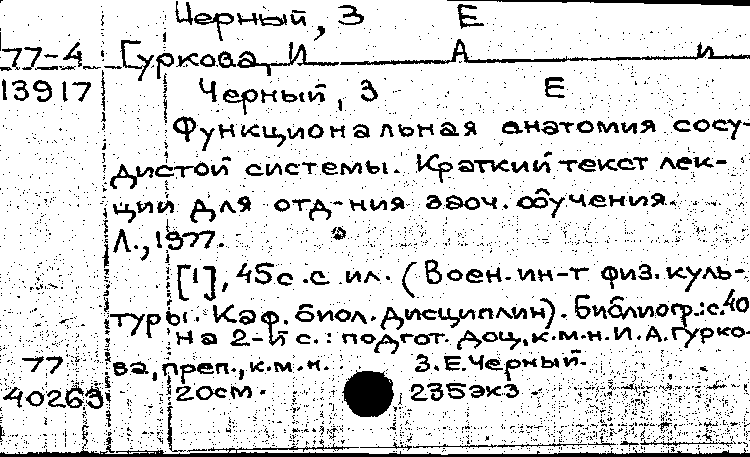 Черный, З Е
77-4 Гуркова, И А и
13917 Черный, З Е
Функциональная анатомия сосу-
дистой системы. Краткий текст лек-
ций для отд-ния заоч. обучения.
Л., 1977.
[1], 45с. с ил. (Воен. ин-т физ. куль-
туры. Каф. биол. дисциплин). Библиогр.: с. 40
На 2-й с.: подгот. доц., к.м.н. И.А. Гурко-
77 ва, преп., к.м.н. З.Е. Черный.
40263 20см. 235экз